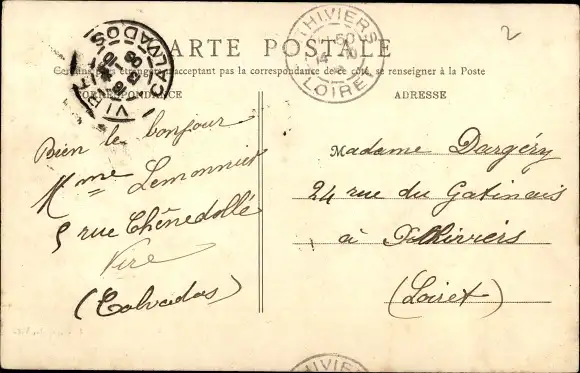 CARTE POSTALE
Certains pays étrangers n'acceptant pas la correspondance de ce côté, se renseigner à la Poste
CORRESPONDANCE
ADRESSE
VIRE
CALVADOS
PITHIVIERS
LOIRET
2
Bien le bonjour
Mme Lemonnier
5 rue Chênedollé
Vire
(Calvados)
Madame Dargéry
24 rue du Gatinais
à Pithiviers
(Loiret)